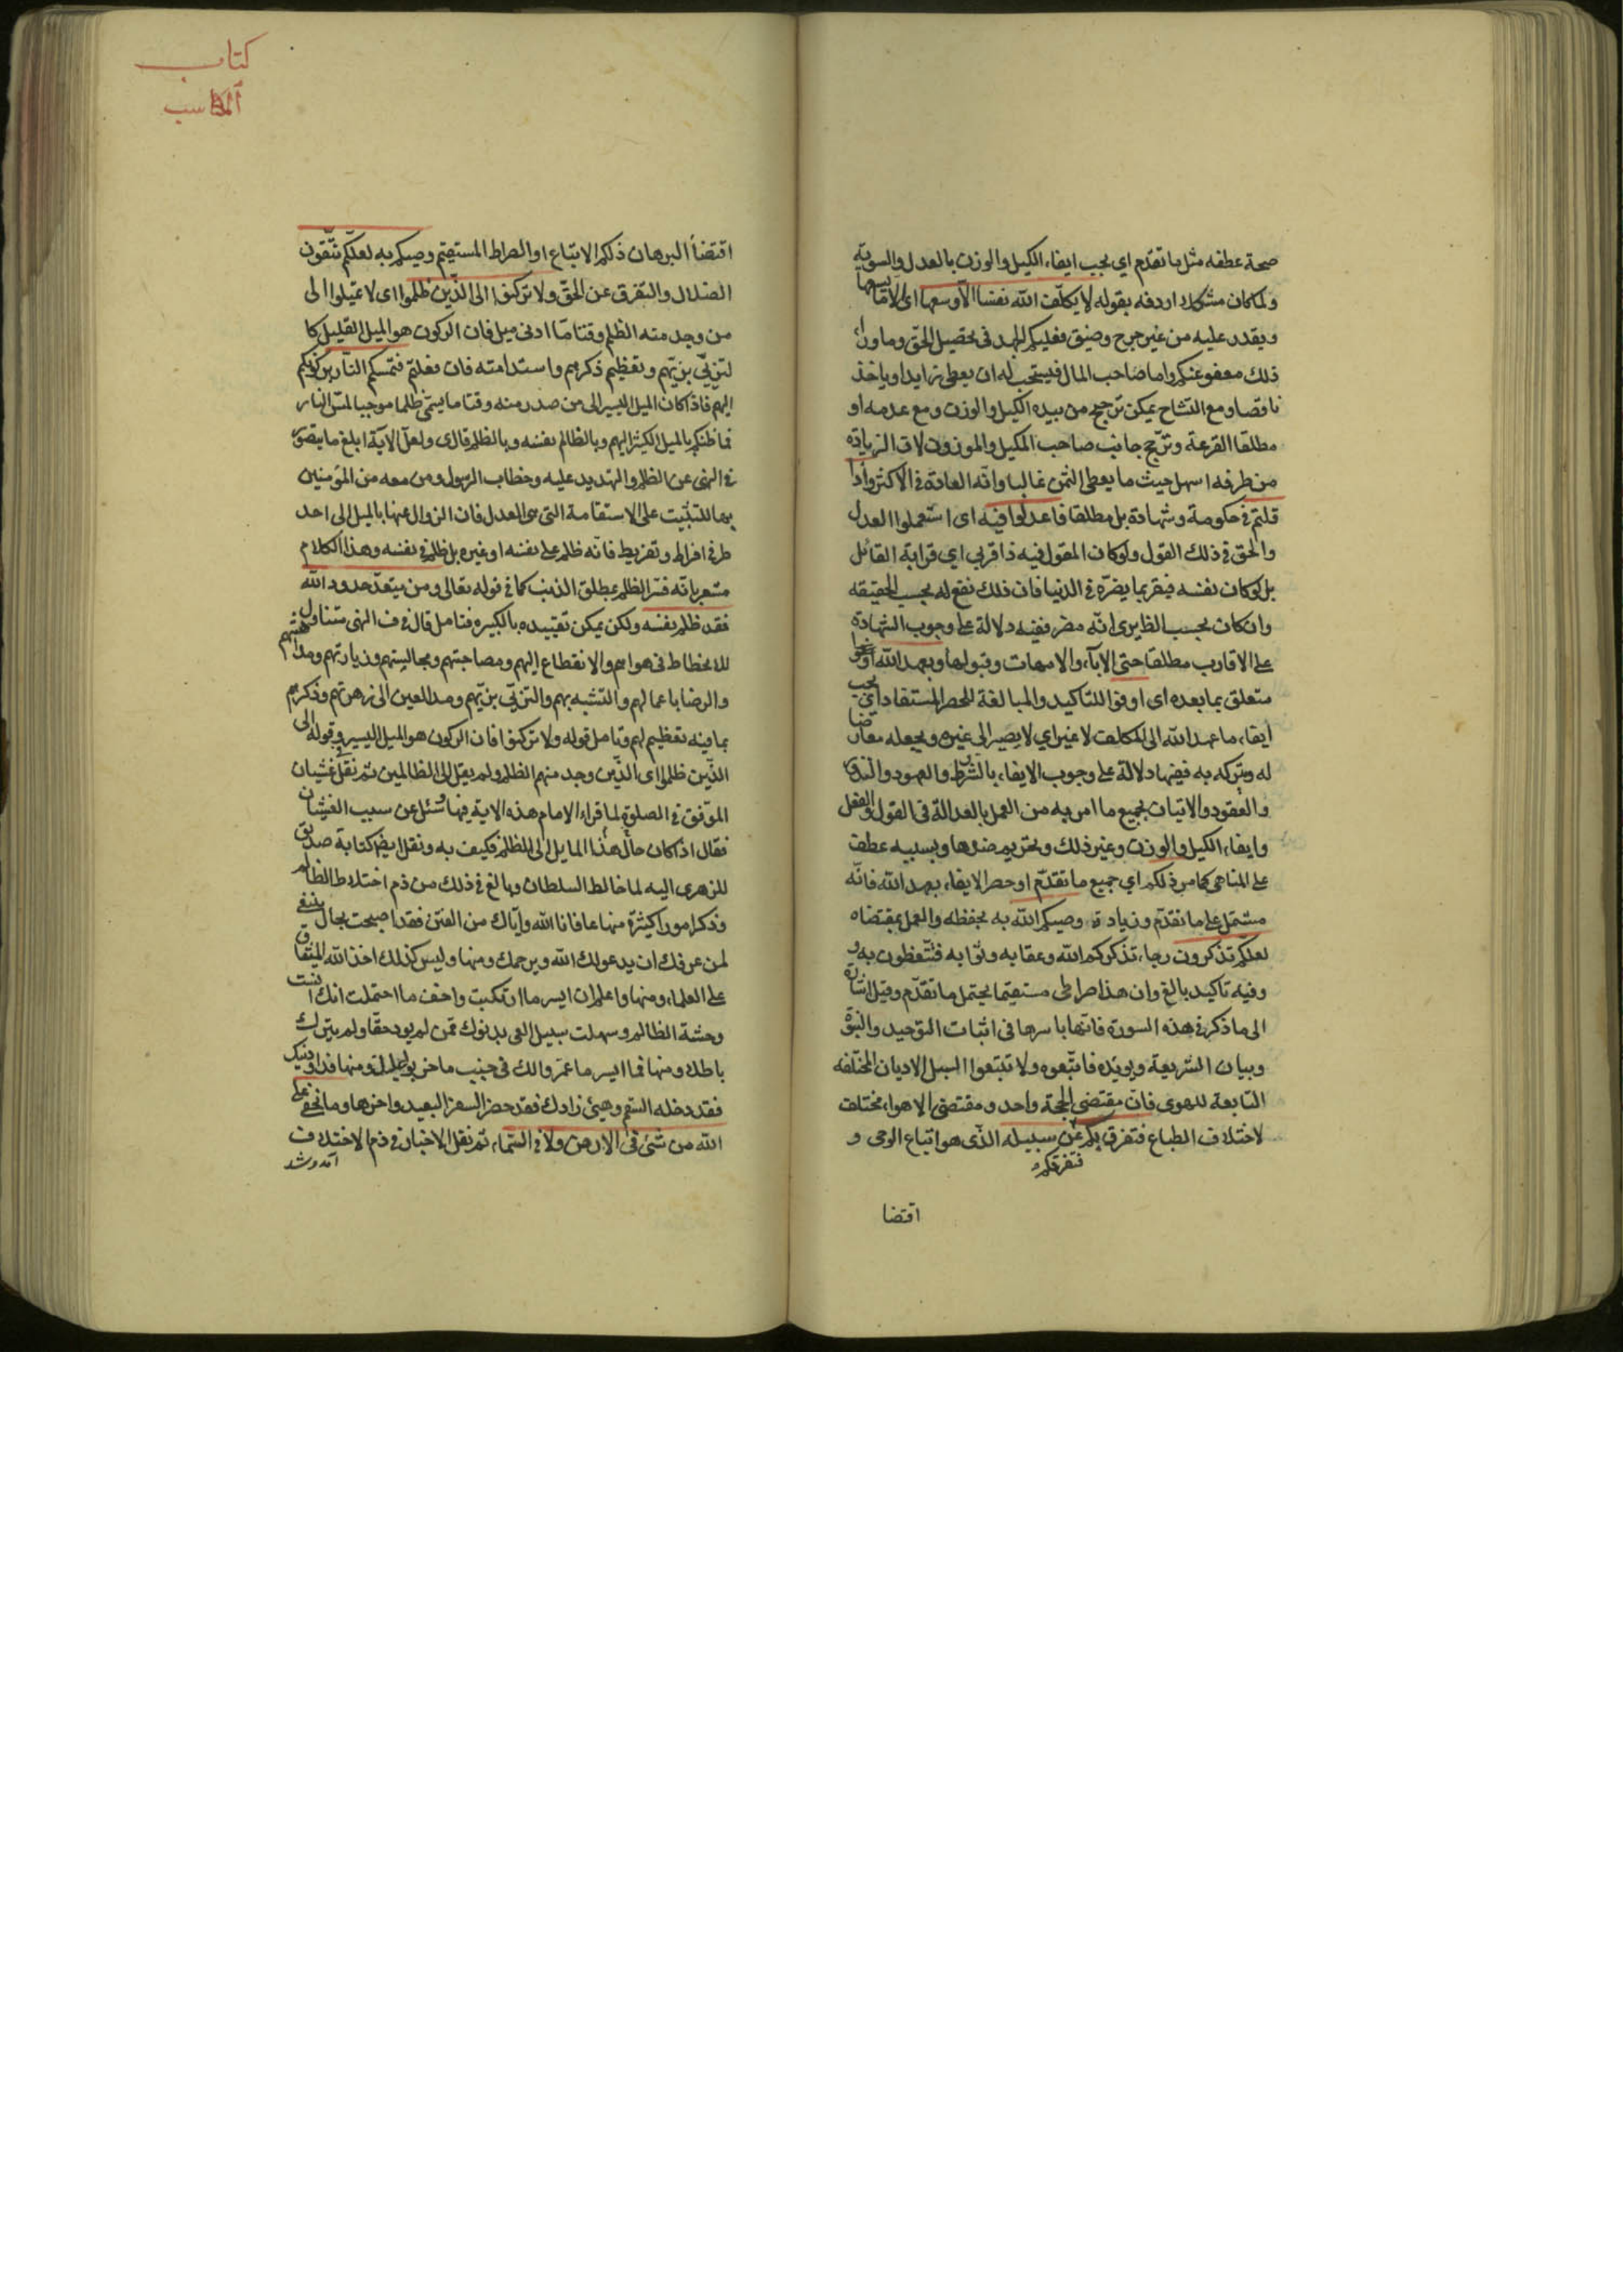 صحة عطفه مثل ما تقدم اي يجب ايفاء الكيل والوزن بالعدل والسويّة
ولما كان مشكلا اردفه بقوله لا يكلّف الله نفسا الاّ وسعها اي الا ما يسعها
ويقدر عليه من غير حرج وضيق فعليكم الجهد في تحصيل الحق وما وراء
ذلك معفو عنكم واما صاحب المال فيستحب له ان يعطى زايدا وياخذ
ناقصا ومع التشاح يمكن ترجيح من بيده الكيل والوزن ومع عدمه او
مطلقا القرعة وترجّح جانب صاحب المكيل والموزون لان الزيادة
من طرفه اسهل حيث ما يعطى الثمن غالبا وانّه العادة في الاكثر واذا
قلتم في حكومة وشهادة بل مطلقا فاعدلوا فيه اى استعملوا العدل
والحق في ذلك القول ولو كان المقول فيه ذا قربى اي قرابة القائل
بل لو كان نفسه فيقر بما يضرّه في الدنيا فان ذلك نفع له بحسب الحقيقه
وان كان بحسب الظاهر يرى انّه مضر ففيه دلالة على وجوب الشهادة
على الاقارب مطلقا حتى الابآء والامهات وقبولها وبعهد الله اوفوا
متعلق بما بعده اى اوفوا للتاكيد والمبالغة للحصر المستفاد اي يجب
ايفاء ما عهد الله الى المكلف لا غير اي لا يصير الى غيره ويجعله معارضا
له ويتركه به ففيها دلالة على وجوب الايفاء بالشرط والعهود والنذور
والعقود والاتيان بجميع ما امر به من العمل بالعدالة في القول والفعل
وايفاء الكيل والوزن وغير ذلك وتحريم ضدها وبسببه عطف
على المناهي كما مر ذلكم اي جميع ما تقدّم او حصر الايفاء بعهد الله فانّه
مشتمل على ما تقدّم وزيادة وصيكم الله به بحفظه والعمل بمقتضاه
لعلّكم تذكرون رجاء تذكركم الله وعقابه وثوابه فتتعظون به
وفيه تاكيد بالغ وان هذا صراطى مستقيما يحتمل ما تقدّم وقيل اشارة
الى ما ذكر في هذه السورة فانّها باسرها في اثبات التوحيد والنبوّة
وبيان الشريعة ويؤيّده فاتّبعوه ولا تتبعوا السبل الاديان المختلفه
التابعة للهوى فان مقتضى الحجة واحد ومقتضى الاهواء مختلف
لاختلاف الطباع فتفرق بكم عن سبيله الذى هو اتباع الوحى و
فتفرقكم
اقتضا
كتاب
المكاسب
اقتضاء البرهان ذلكم الاتباع او الصراط المستقيم وصيكم به لعلّكم تتّقون
الضلال والتفرق عن الحقّ ولا تركنوا الى الذّين ظلموا اى لا تميلوا الى
من وجد منه الظلم وقتا مّا ادنى ميل فان الركون هو الميل القليل كا
لتزيّي بزيّهم وتعظيم ذكرهم واستدامته فان فعلتم فتمسكم النار بركونكم
اليهم فاذا كان الميل اليسير الى من صدر منه وقتا ما يسمّى ظلما موجبا لمسّ النار
فما ظنكم بالميل الكثير اليهم وبالظالم نفسه وبالظلم قال ى ولعلّ الآية ابلغ ما يتصوّر
في النهى عن الظلم والتهديد عليه وخطاب الرسول ومن معه من المؤمنين
بها للتثبيت على الاستقامة التى هى العدل فان الزوال عنها بالميل الى احد
طرفي افراط وتفريط فانّه ظلم على نفسه او غيره بل ظلم في نفسه وهذا الكلام
مشعر بانّه فسّر الظلم بمطلق الذنب كما في قوله تعالى ومن يتعدّ حدود الله
فقد ظلم نفسه ولكن يمكن تقييده بالكبيره فتامل قال في ف النهى متناول
للانحطاط في هواهم والانقطاع اليهم ومصاحبتهم ومجالستهم وزيارتهم ومداهنتهم
والرضا باعمالهم والتشبه بهم والتزيّي بزيّهم ومد العين الى زهرتهم وذكرهم
بما فيه تعظيم لهم وتامل قوله ولا تركنوا فان الركون هو الميل اليسير وقوله الى
الذّين ظلموا اى الذّين وجد منهم الظلم ولم يقل الى الظالمين ثم نقل غشيان
الموّفق في الصلوة لما قراء الامام هذه الاية فيها وسئل عن سبب الغشيان
فقال اذا كان حال هذا المايل الى الظلم فكيف به ونقل ايضا كتابة صديق
للزهرى اليه لما خالط السلطان وبالغ في ذلك من ذم اختلاط الظالم
وذكر امورا كثيرة منها عافانا الله وايّاك من الفتن فقد اصبحت بحال ينبغي
لمن عرفك ان يدعو لك الله ويرحمك ومنها وليس كذلك اخذ الله الميثاق
على العلماء ومنها واعلم ان ايسر ما ارتكبت واخف ما احتملت انك انست
وحشة الظالم وسهلت سبيل الغى بدنوك ممّن لم يود حقّا ولم يترك
باطلا ومنها فما ايسر ما عمّروا لك في جنب ما خربوا عليك ومنها فداو دينك
فقد دخله السقم وهيئ زادك فقد حضر السفر البعيد واخرها وما يخفى على
الله من شئ في الارض ولا في السّماء ثم نقل الاخبار في ذم الاختلاف